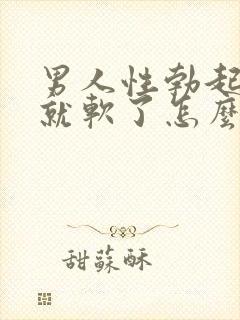 男人性勃起
就軟了怎麼
甜蘇酥